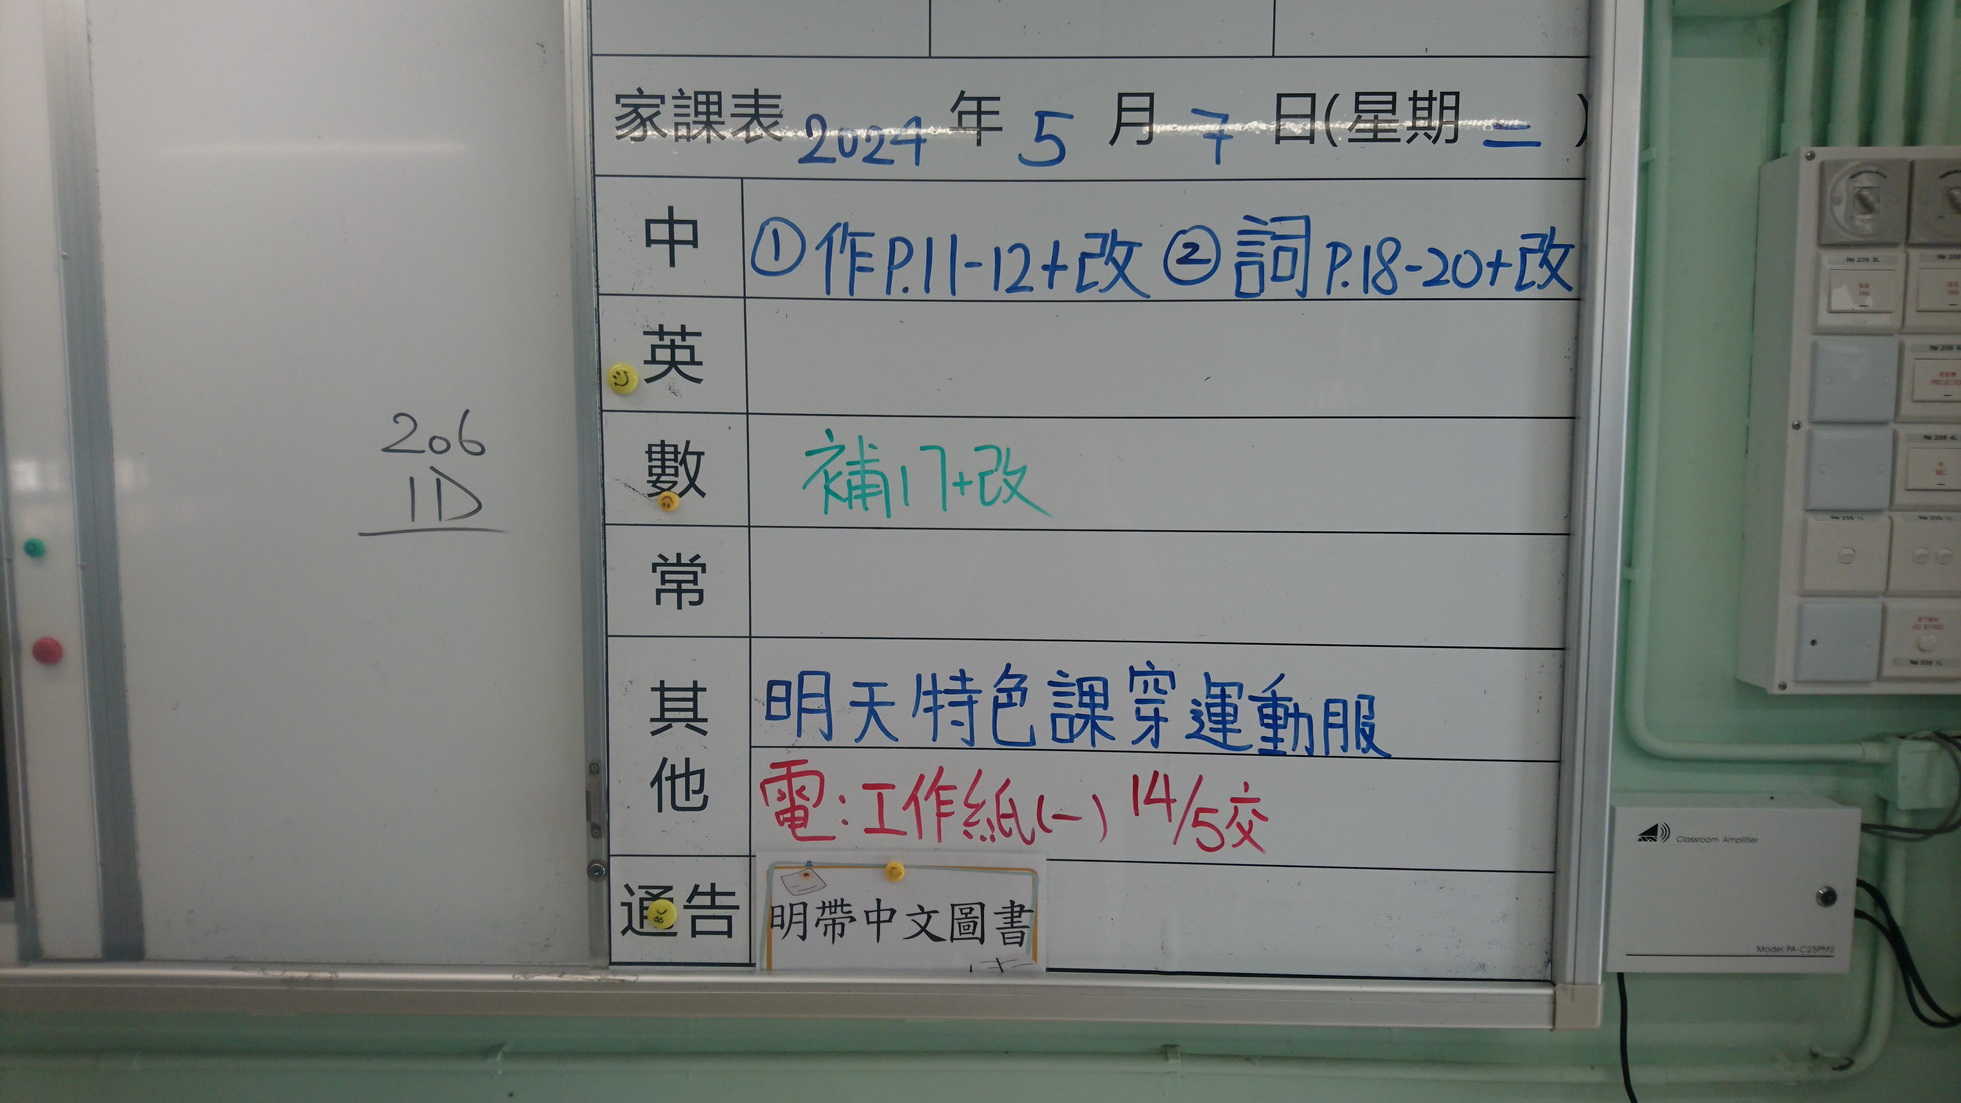 家課表 2024 年 5 月 7 日(星期 二 )
中 ①作P.11-12+改 ②詞P.18-20+改
英
數 補17+改
常
其他 明天特色課穿運動服
電:工作紙(一) 14/5交
通告 明帶中文圖書
206
1D
Classroom Amplifier
Model:PA-C25PM2